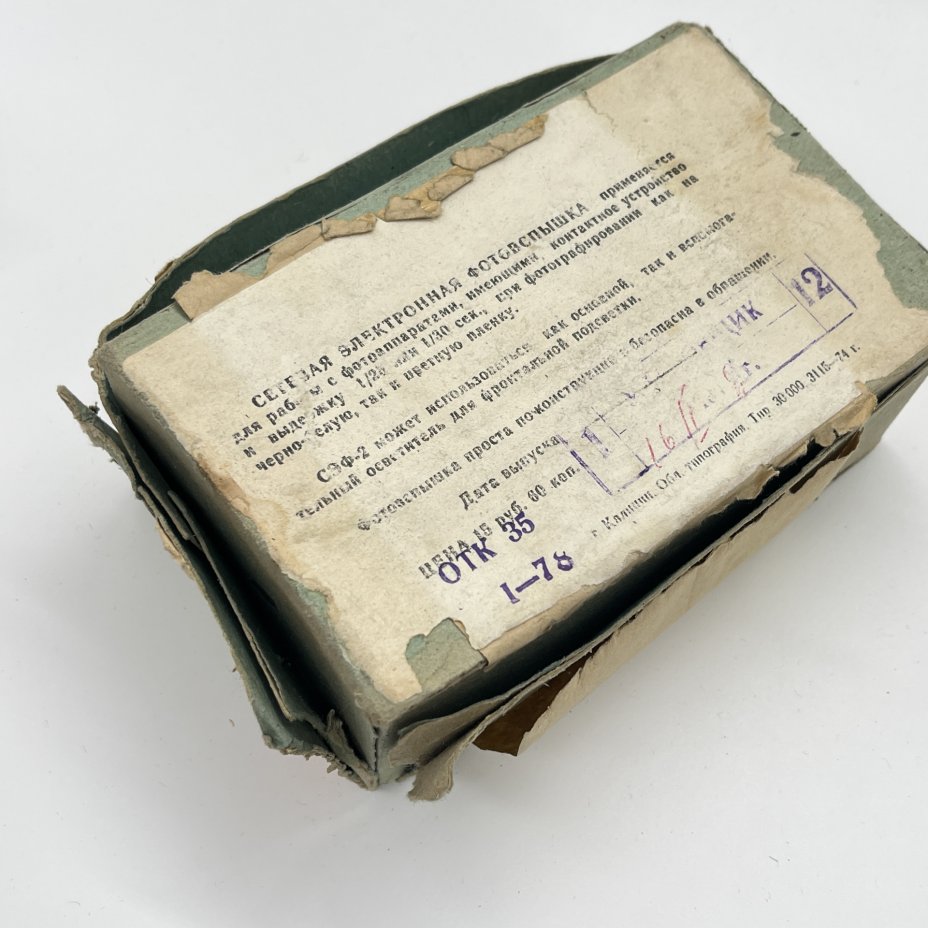 СЕТЕВАЯ ЭЛЕКТРОННАЯ ФОТОВСПЫШКА применяется
для работы с фотоаппаратами, имеющими контактное устройство
и выдержку 1/25 или 1/30 сек., при фотографировании как на
черно-белую, так и цветную пленку.
СЭФ-2 может использоваться как основной, так и вспомога-
тельный осветитель для фронтальной подсветки.
Фотовспышка проста по конструкции и безопасна в обращении.
Дата выпуска
ЩИК 12
1
16 II
г.
ЦЕНА 15 руб. 60 коп.
г. Калинин. Обл. типография. Тир. 30 000. 3113—74 г.
ОТК 35
I—78